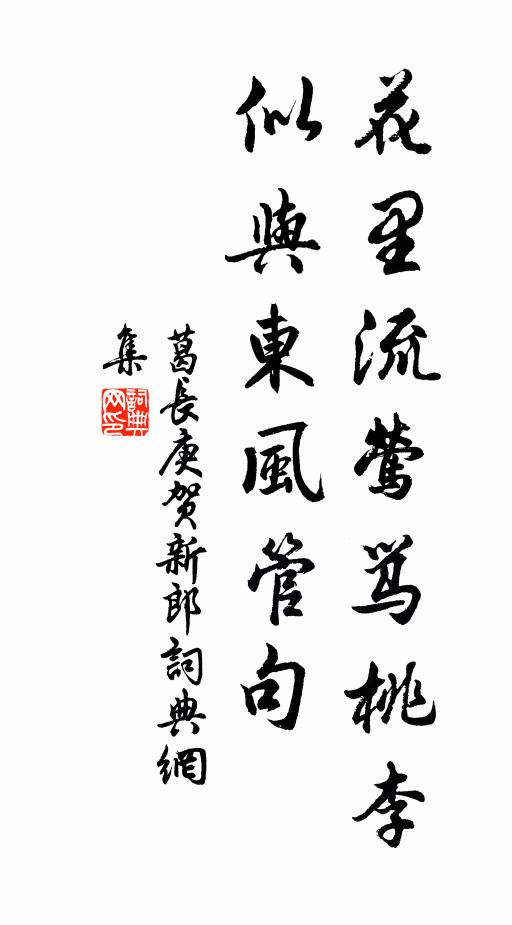 花里流莺骂桃李
似與東風管句
葛長庚贺新郎詞典網
集
詞典
网印